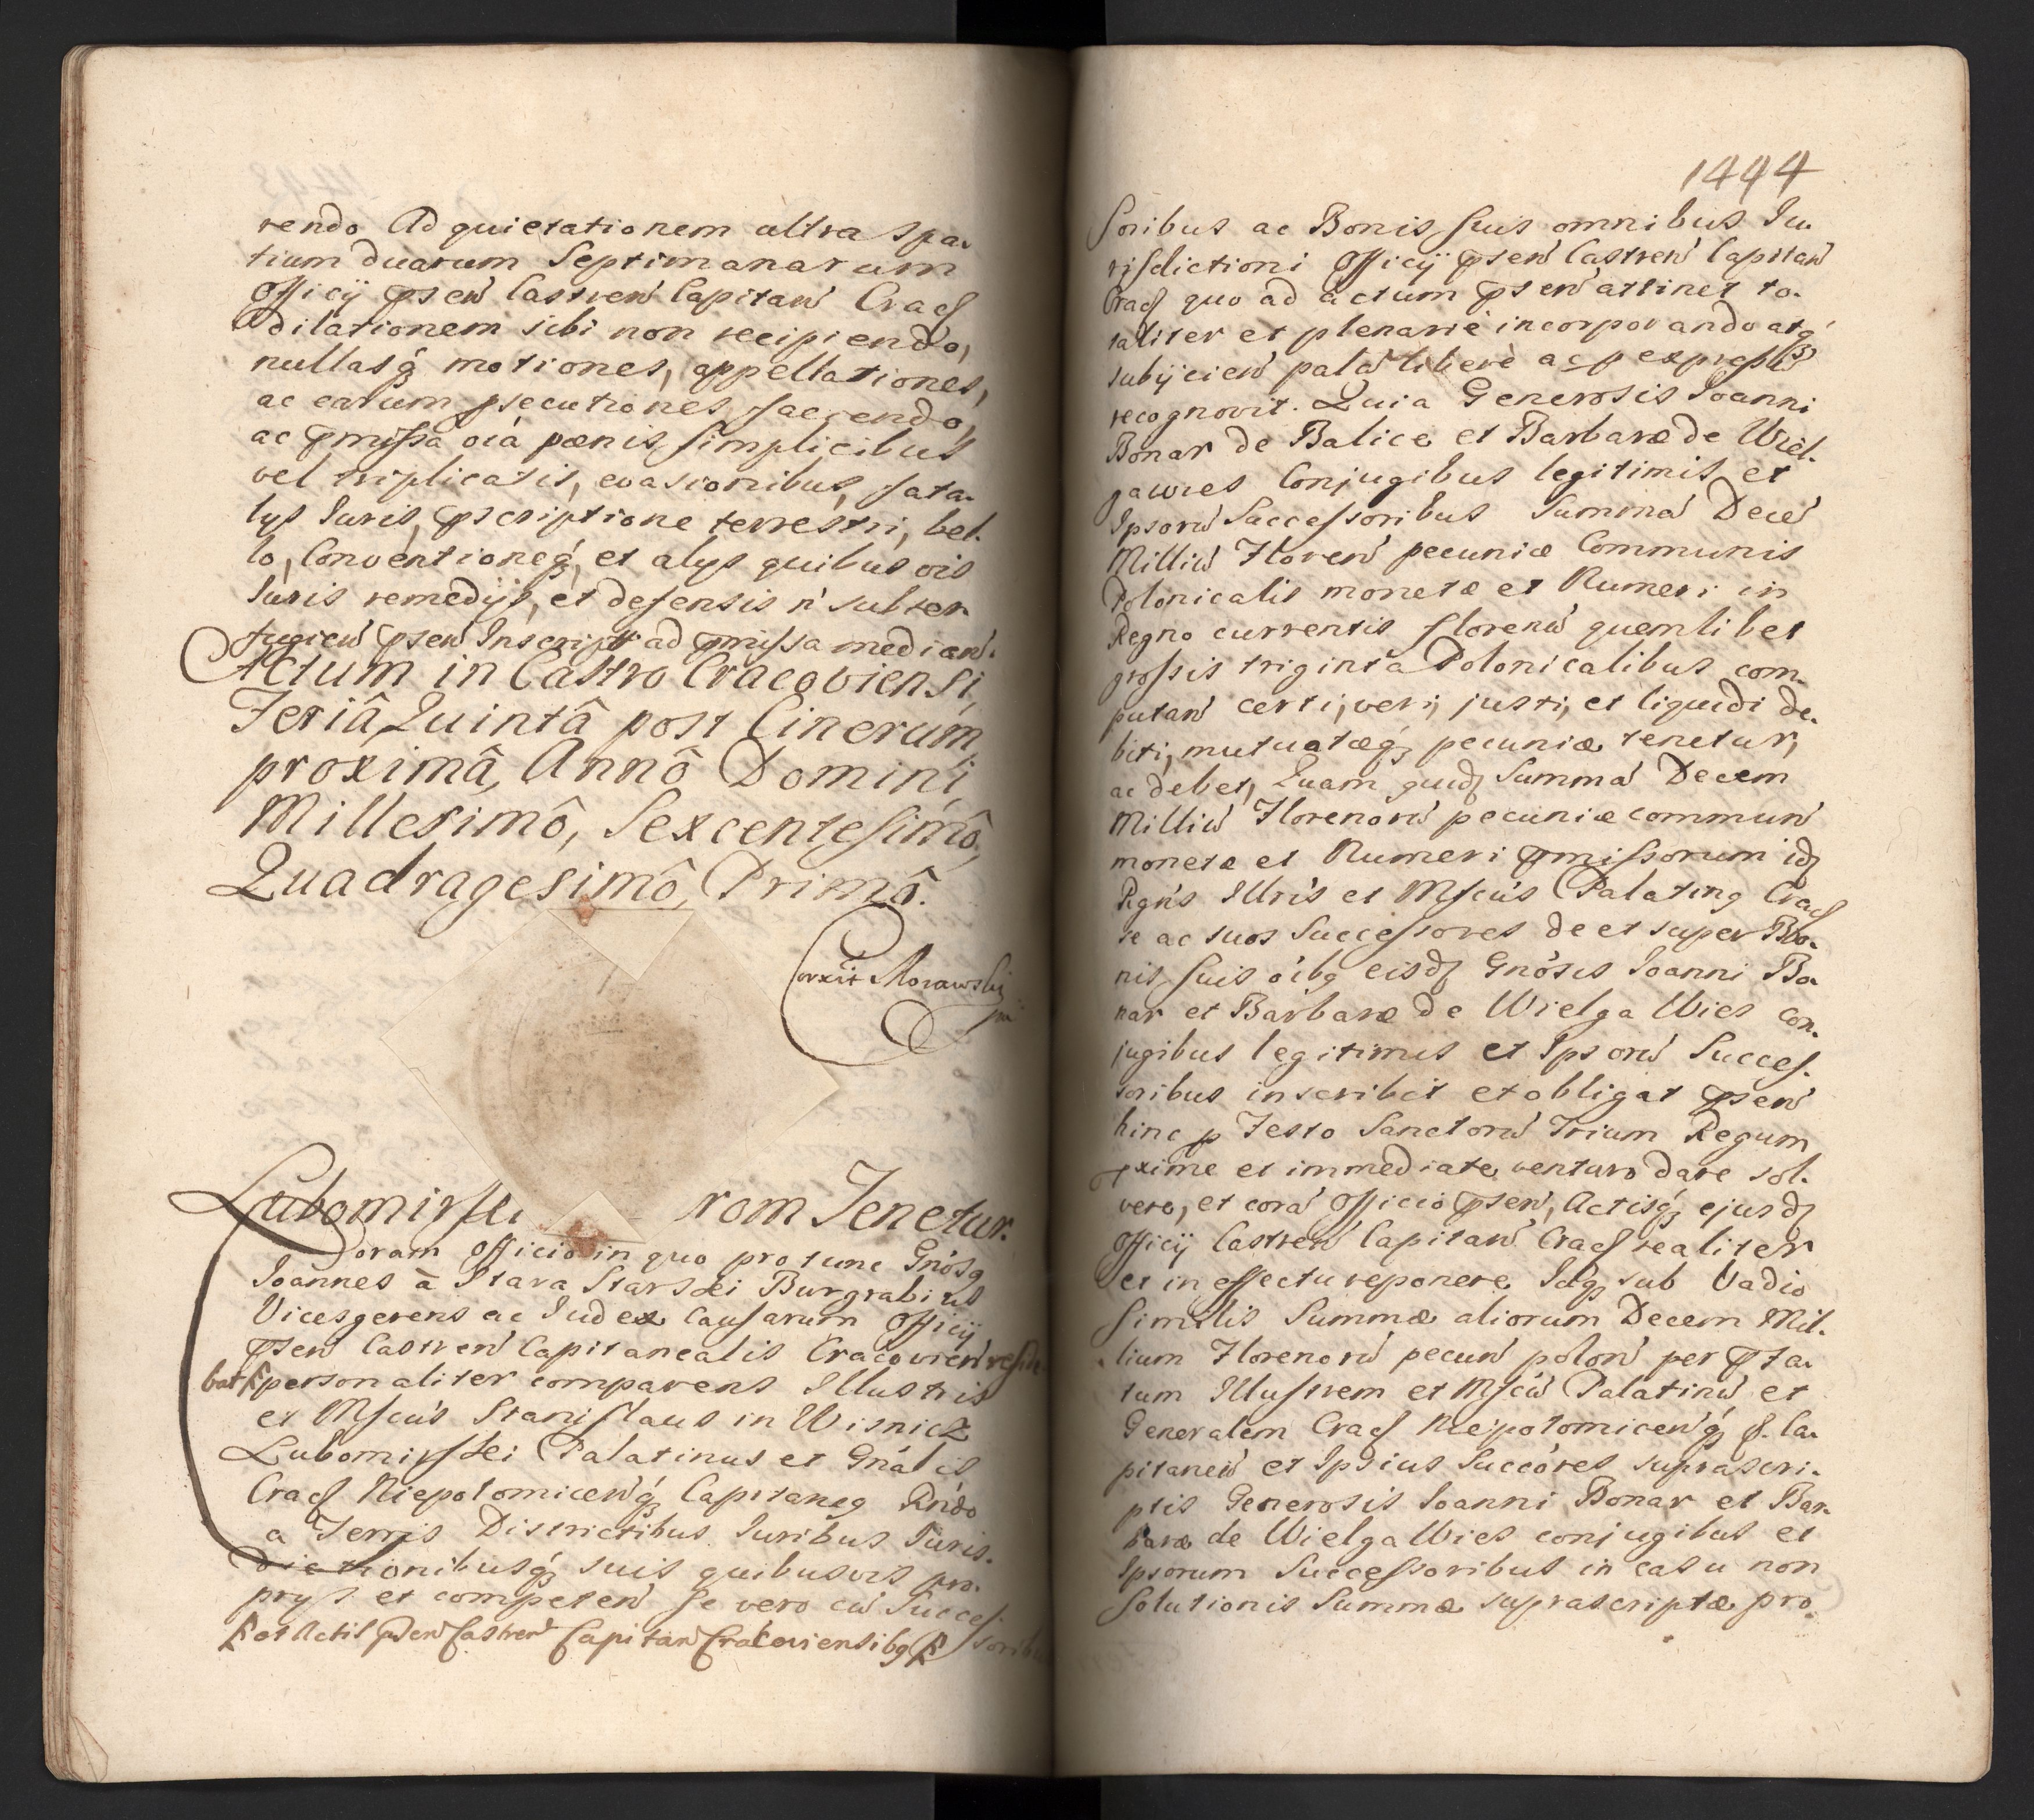 rendo Ad quietationem ultra spa-
tium duarum Septimanarum
Officij psen Castren Capitan Crac
dilationem sibi non recipiendo,
nullasq motiones, appellationes,
ac earum psecutiones faciendo,
ac pmissa oia pœnis simplicibus
vel triplicatis, evasionibus, fata-
lys Juris, pscriptione terrestri, bel-
lo, Conventioneq, et alys quibus vis
Juris remedijs, et defensis n subter
fugien psen Inscript ad pmissa median.
Actum in Castro Cracoviensi,
Feriâ Quintâ post Cinerum
proximâ, Annô Domini
Millesimô, Sexcentesimô,
Quadragesimô, Primô.
Correxit Morawski
Lubomirski rom Tenetur.
Coram Officio in quo pro tunc Gnosq
Joannes à Stara Starski Burgrabius
Vicesgerens ac Judex Causarum Officij
psen Castren Capitanealis Cracovien reside-
bat personaliter comparens Illustris
et Mfcus Stanislaus in Wisnicz
Lubomirski Palatinus et Gnalis
Crac Niepolomicenq Capitaneq Rndo
a Terris Districtibus Juribus Juris-
dictionibusq suis quibusvis pro-
prys et competen se vero cu Succes-
soribus
et Actis psen Castren Capitan Cracoviensibq
1444
soribus ac Bonis suis omnibus Ju-
risdictioni Officij psen Castren Capitan
Crac quo ad actum psen attinet to-
taliter et plenariè incorporando atq
subijcien palã liberè ac p expressũ
recognovit. Quia Generosis Joanni
Bonar de Balice et Barbaræ de Wiel-
gawies Conjugibus legitimis et
Ipsorũ Successoribus Summã Decẽ
Milliũ Floren pecuniæ Communis
Polonicalis monetæ et Numeri in
Regno currentis florenũ quemlibet
grossis triginta Polonicalibus com-
putan certi, veri, justi, et liquidi de-
biti, mutuatæq pecuniæ tenetur,
ac debet, Quam quid Summã Decem
Milliũ Florenorũ pecuniæ commun
monetæ et Numeri pmissorum id
Rgns Illris et Mfcus Palatinq Crac
se ac suos Successores de et super Bo-
nis suis oibq eisd Gnosis Joanni Bo-
nar et Barbaræ de Wielga Wies con-
jugibus legitimis et Ipsorũ Succes-
soribus inscribit et obligat psen
hinc p Festo Sanctorũ Trium Regum
pxime et immediate venturo dare sol-
vere, et corã Officio psen, Actisq ejusd
Officij Castren Capitan Crac realiter
et in effectu reponere Idq sub Vadio
similis Summæ aliorum Decem Mil-
lium Florenorũ pecun polon per pfa-
tum Illustrem et Mfcũ Palatinũ et
Generalem Crac Niepolomicenq p. Ca-
pitaneũ et Ipsius Succores suprascri-
ptis Generosis Joanni Bonar et Bar-
baræ de Wielga Wies conjugibus et
Ipsorum Successoribus in casu non
Solutionis Summæ suprascriptæ pro